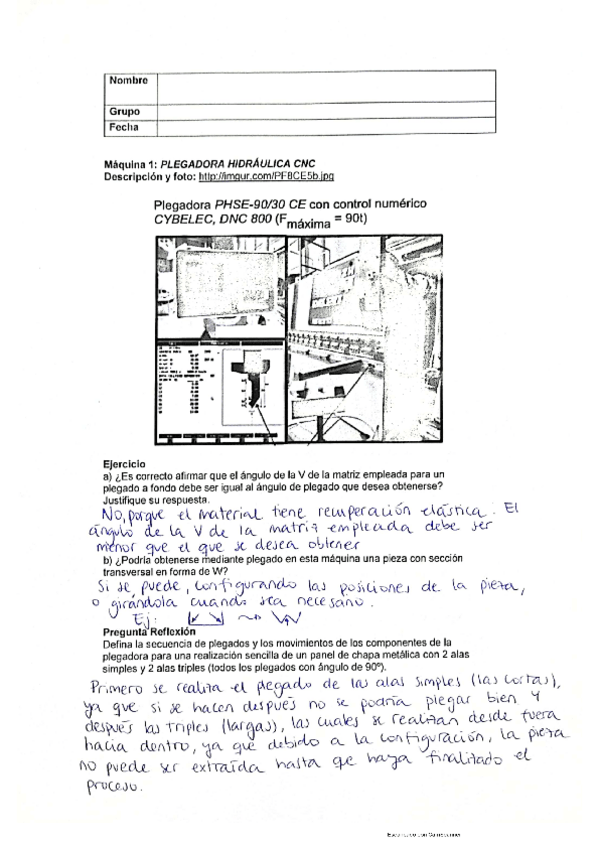 Nombre
Grupo
Fecha
Máquina 1: PLEGADORA HIDRÁULICA CNC
Descripción y foto: http://imgur.com/PF8CE5b.jpg
Plegadora PHSE-90/30 CE con control numérico
CYBELEC, DNC 800 (Fmáxima = 90t)
Ejercicio
a) ¿Es correcto afirmar que el ángulo de la V de la matriz empleada para un
plegado a fondo debe ser igual al ángulo de plegado que desea obtenerse?
Justifique su respuesta.
No, porque el material tiene recuperación elástica. El
ángulo de la V de la matriz empleada debe ser
menor que el que se desea obtener
b) ¿Podría obtenerse mediante plegado en esta máquina una pieza con sección
transversal en forma de W?
Si se puede, configurando las posiciones de la pieza,
o girándola cuando sea necesario.
Ej:
Pregunta Reflexión
Defina la secuencia de plegados y los movimientos de los componentes de la
plegadora para una realización sencilla de un panel de chapa metálica con 2 alas
simples y 2 alas triples (todos los plegados con ángulo de 90º).
Primero se realiza el plegado de las alas simples (las cortas),
ya que si se hacen después no se podría plegar bien y
después las triples (largas), las cuales se realizan desde fuera
hacia dentro, ya que debido a la configuración, la pieza
no puede ser extraída hasta que haya finalizado el
proceso.
Escaneado con CamScanner